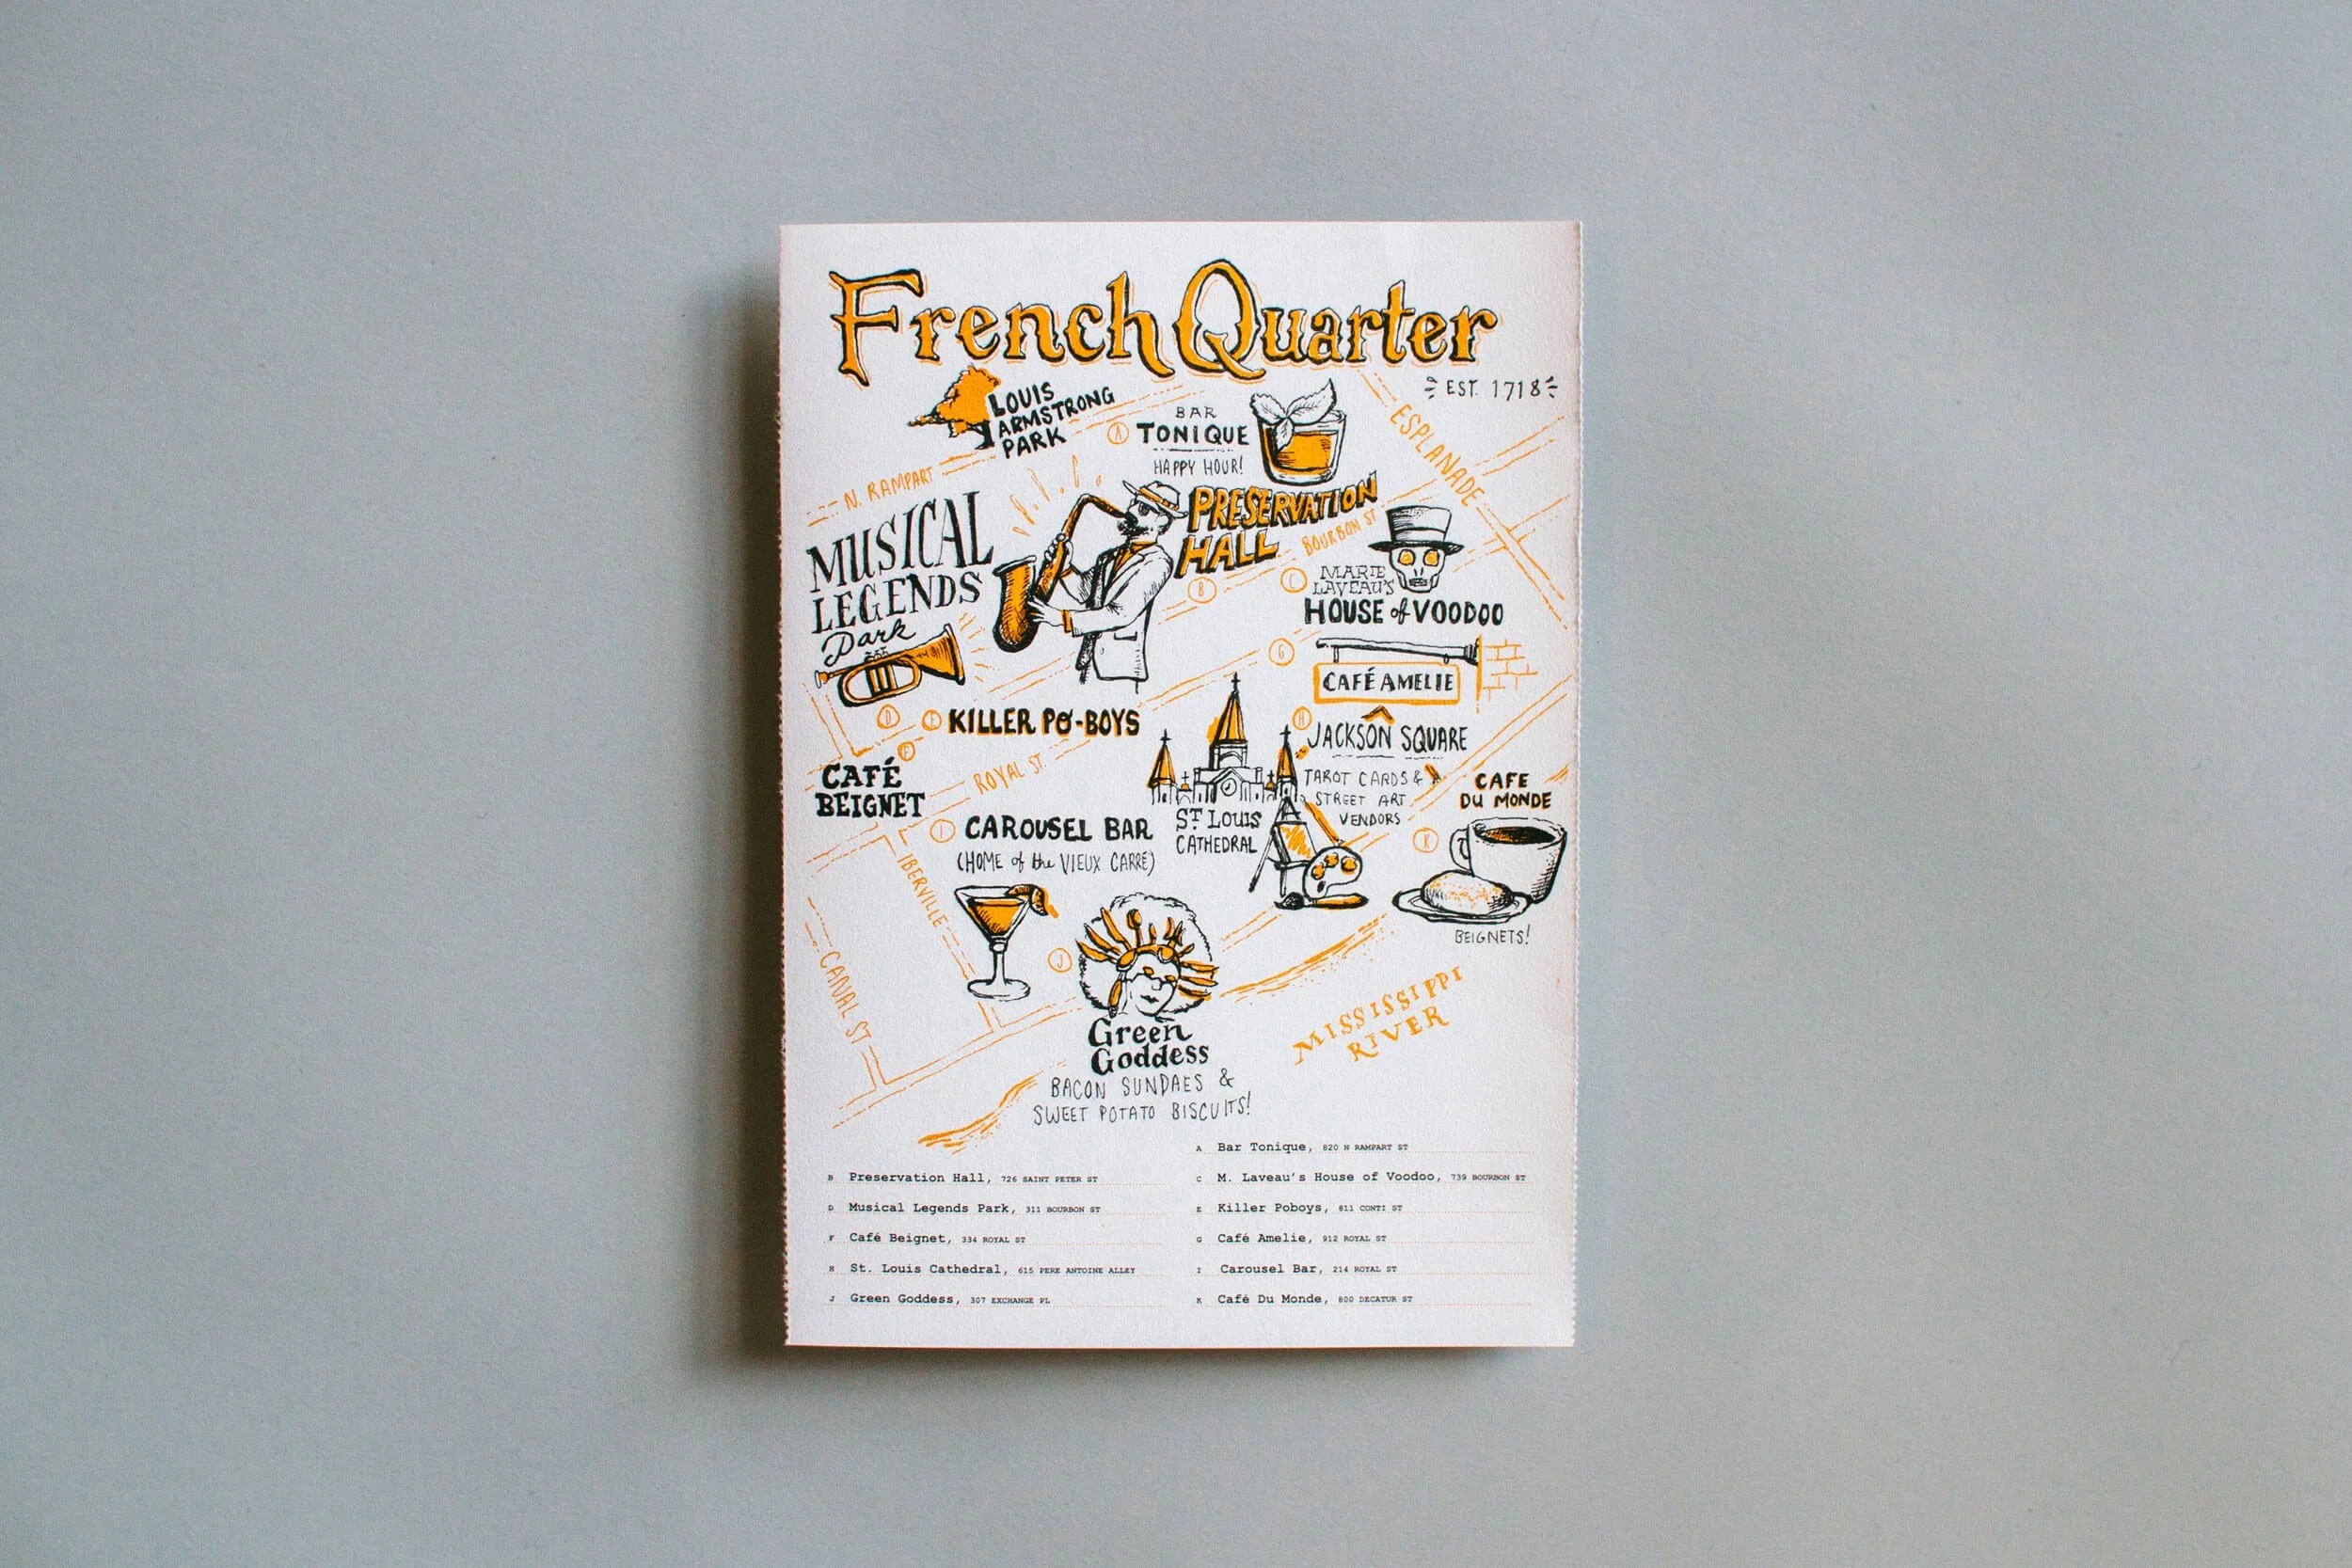 French Quarter
EST. 1718
LOUIS
ARMSTRONG
PARK
BAR
A TONIQUE
HAPPY HOUR!
ESPLANADE
N. RAMPART
MUSICAL
LEGENDS
Park
PRESERVATION
HALL
B
BOURBON ST
C
MARIE
LAVEAU'S
HOUSE of VOODOO
G
CAFÉ AMELIE
D
E KILLER PO-BOYS
F
CAFÉ
BEIGNET
ROYAL ST.
H
JACKSON SQUARE
TAROT CARDS &
STREET ART
VENDORS
ST LOUIS
CATHEDRAL
CAFE
DU MONDE
K
BEIGNETS!
I CAROUSEL BAR
(HOME of the VIEUX CARRÉ)
IBERVILLE
CANAL ST
J
Green
Goddess
BACON SUNDAES &
SWEET POTATO BISCUITS!
MISSISSIPPI
RIVER
A Bar Tonique, 820 N RAMPART ST
B Preservation Hall, 726 SAINT PETER ST
C M. Laveau's House of Voodoo, 739 BOURBON ST
D Musical Legends Park, 311 BOURBON ST
E Killer Poboys, 811 CONTI ST
F Café Beignet, 334 ROYAL ST
G Café Amelie, 912 ROYAL ST
H St. Louis Cathedral, 615 PERE ANTOINE ALLEY
I Carousel Bar, 214 ROYAL ST
J Green Goddess, 307 EXCHANGE PL
K Café Du Monde, 800 DECATUR ST